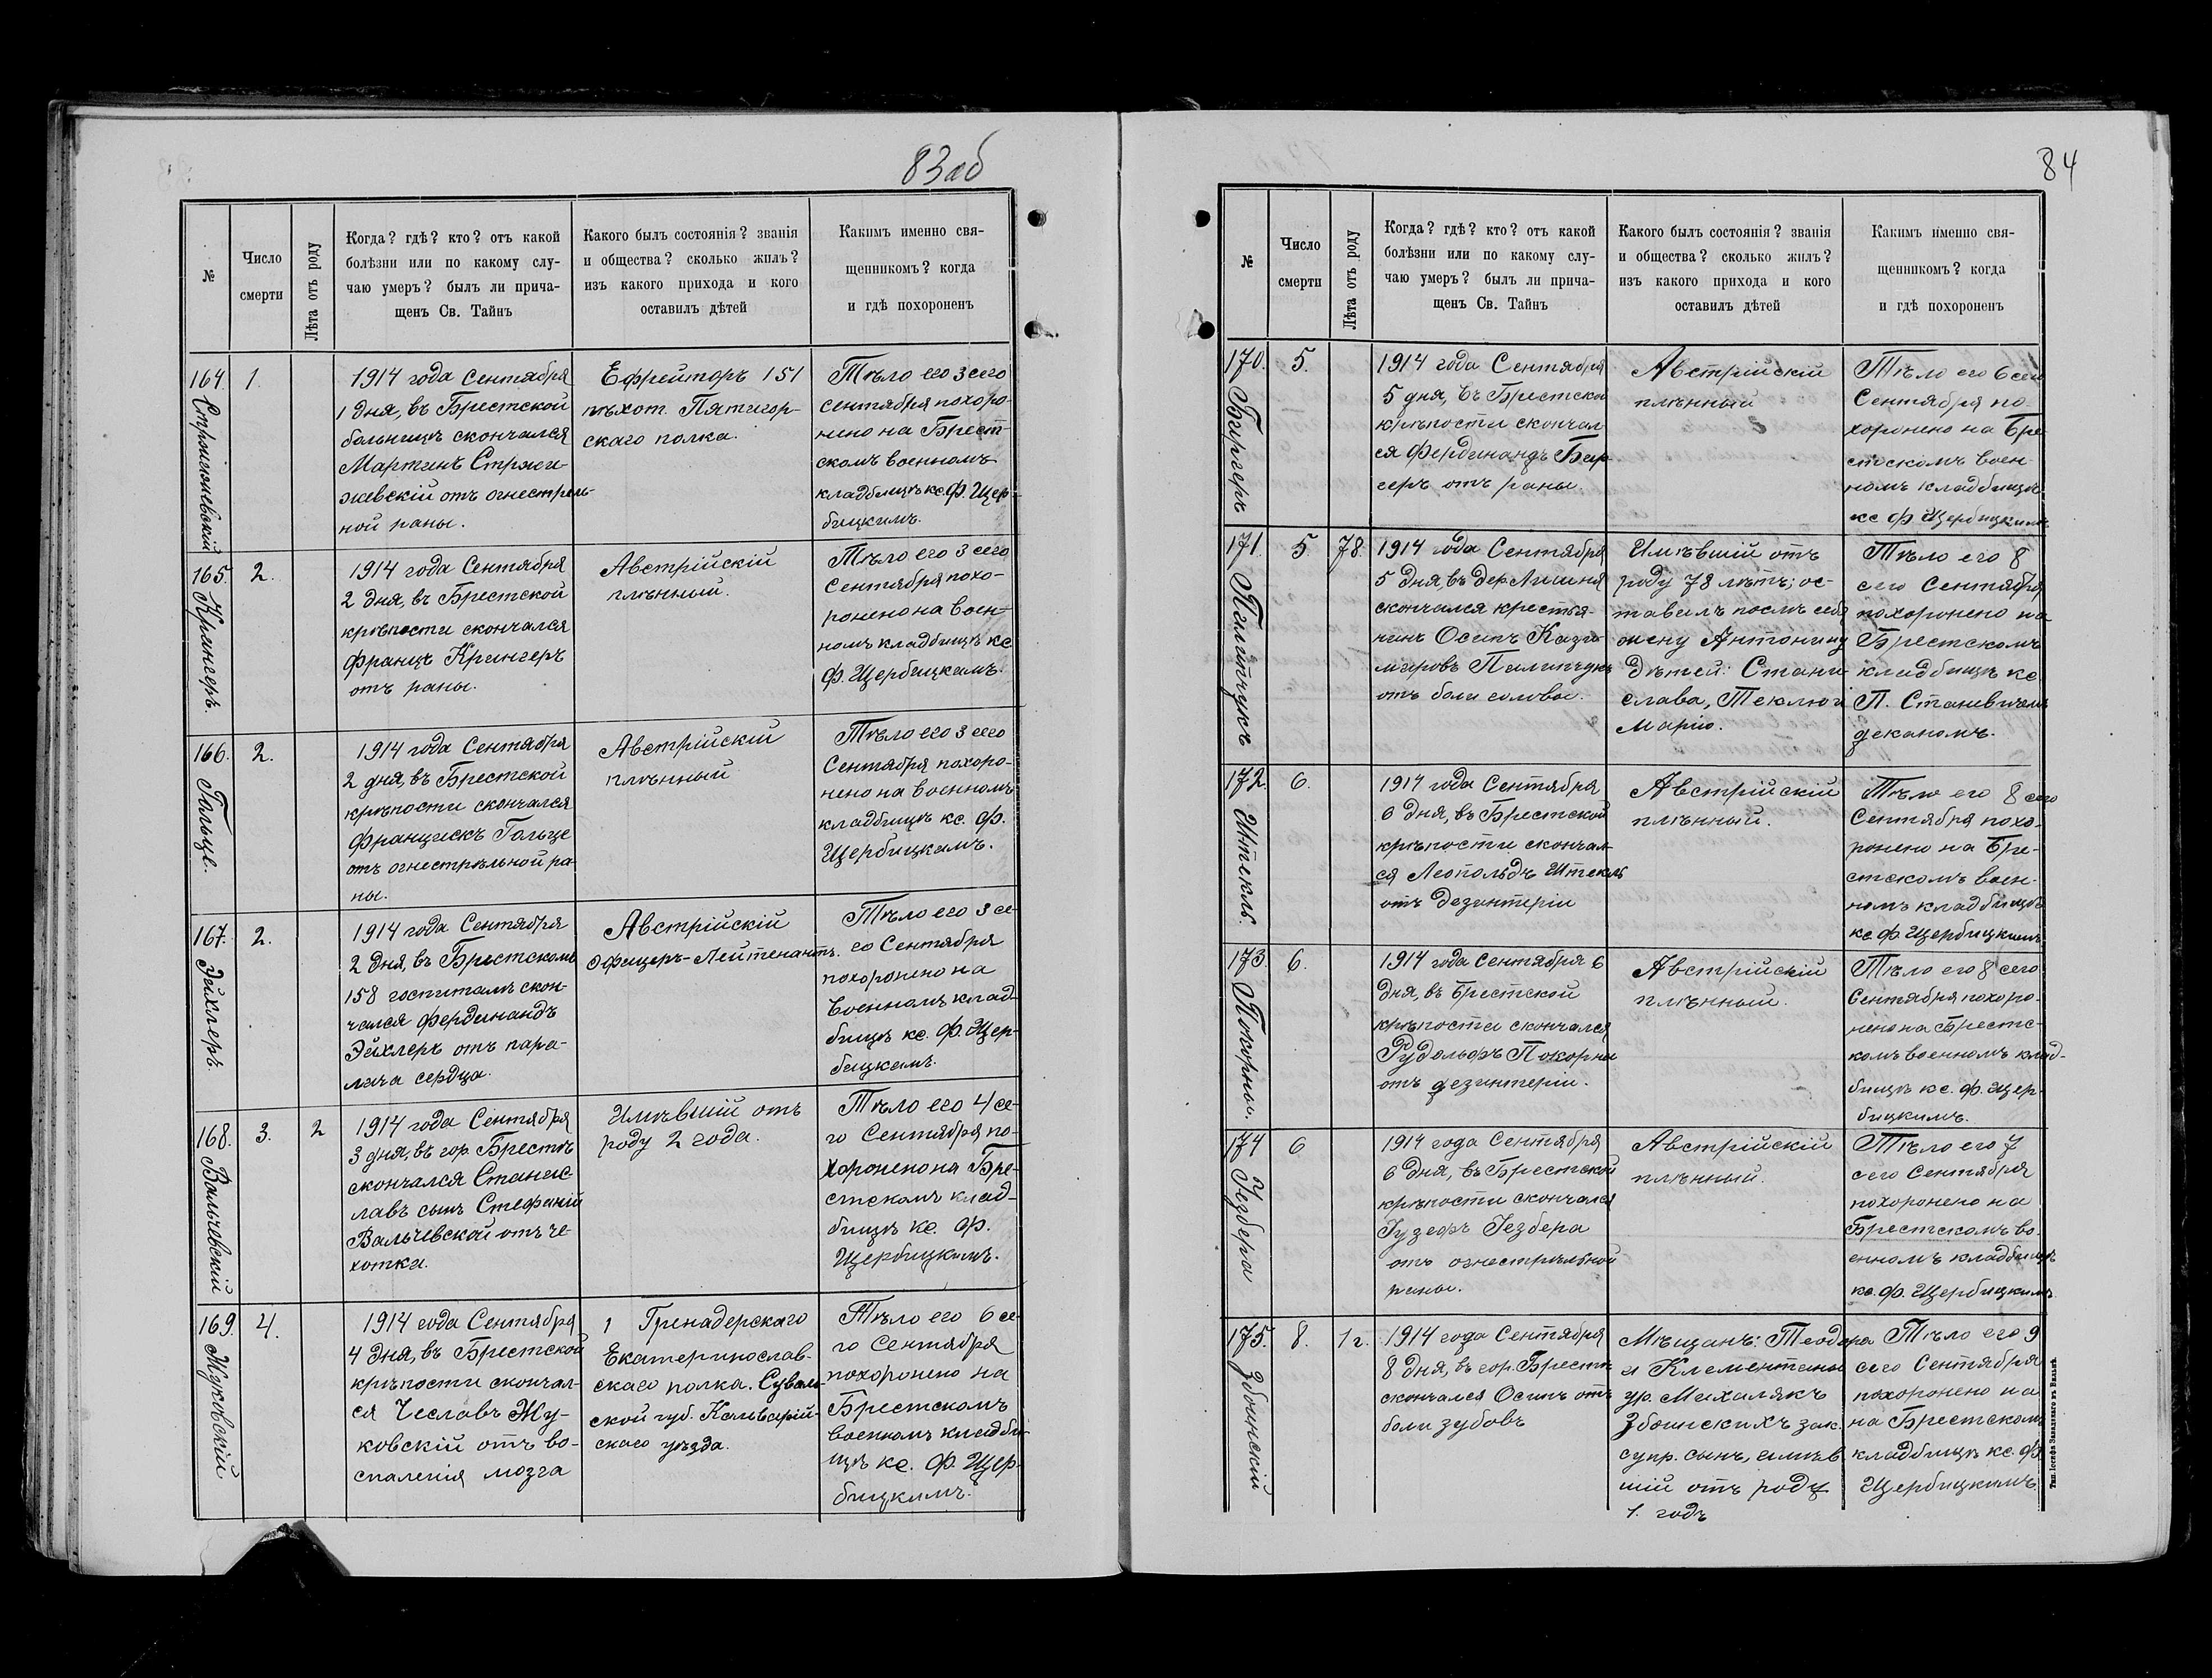 83 об
№
Число
смерти
Лѣта отъ роду
Когда? гдѣ? кто? отъ какой
болѣзни или по какому слу-
чаю умеръ? былъ ли прича-
щенъ Св. Тайнъ
Какого былъ состоянія? званія
и общества? сколько жилъ?
изъ какого прихода и кого
оставилъ дѣтей
Какимъ именно свя-
щенникомъ? когда
и гдѣ похороненъ
164.
1.
1914 года Сентября
1 дня, въ Брестской
больницѣ скончался
Мартинъ
жевскій отъ огнестрель-
ной раны.
Ефрейторъ 151
пѣхот. Пятигор-
скаго полка.
Тѣло его 3 сего
Сентября похоро-
нено на Брест-
скомъ военномъ
кладбищѣ кс. Ф. Щер-
бицкимъ.
165. Крингеръ.
2.
1914 года Сентября
2 дня, въ Брестской
крѣпости скончался
Францъ Крингеръ
отъ раны.
Австрійскій
плѣнный.
Тѣло его 3 сего
Сентября похо-
ронено на воен-
номъ кладбищѣ кс.
Ф. Щербицкимъ.
166. Гольце.
2.
1914 года Сентября
2 дня, въ Брестской
крѣпости скончался
Францискъ Гольце
отъ огнестрѣльной ра-
ны.
Австрійскій
плѣнный
Тѣло его 3 сего
Сентября похоро-
нено на военномъ
кладбищѣ кс. Ф.
Щербицкимъ.
167. Эйхлеръ.
2.
1914 года Сентября
2 дня, въ Брестскомъ
158 госпиталѣ скон-
чался Фердинандъ
Эйхлеръ отъ пара-
лича сердца.
Австрійскій
Офицеръ-Лейтенантъ.
Тѣло его 3 се-
го Сентября
похоронено на
военномъ клад-
бищѣ кс. Ф. Щер-
бицкимъ.
168. Вальчевскій
3.
2
1914 года Сентября
3 дня, въ гор. Брестѣ
скончался Станис-
лавъ сынъ Стефаніи
Вальчевской отъ че-
хотки.
Имѣвшій отъ
роду 2 года.
Тѣло его 4 се-
го Сентября по-
хоронено на Бре-
стскомъ клад-
бищѣ кс. Ф.
Щербицкимъ.
169. Жуковскій
4.
1914 года Сентября
4 дня, въ Брестской
крѣпости скончал-
ся Чеславъ Жу-
ковскій отъ во-
спаленія мозга
1 Гренадерскаго
Екатеринослав-
скаго полка. Суваль-
ской губ. Кальварій-
скаго уѣзда.
Тѣло его 6 се-
го Сентября
похоронено на
Брестскомъ
военномъ кладби-
щѣ кс. Ф. Щер-
бицкимъ.
84
№
Число
смерти
Лѣта отъ роду
Когда? гдѣ? кто? отъ какой
болѣзни или по какому слу-
чаю умеръ? былъ ли прича-
щенъ Св. Тайнъ
Какого былъ состоянія? званія
и общества? сколько жилъ?
изъ какого прихода и кого
оставилъ дѣтей
Какимъ именно свя-
щенникомъ? когда
и гдѣ похороненъ
170. Биргеръ
5.
1914 года Сентября
5 дня, въ Брестской
крѣпости скончал
ся Фердинандъ Бир-
геръ отъ раны.
Австрійскій
плѣнный
Тѣло его 6 сего
Сентября по-
хоронено на Бре
стскомъ воен-
номъ кладбищѣ
кс Ф Щербицкимъ
171. Пилипчукъ
5
78.
1914 года Сентября
5 дня, въ дер.
скончался крестья-
нинъ Осипъ Кази-
мировъ Пилипчукъ
отъ боли головы.
Имѣвшій отъ
роду 78 лѣтъ; ос-
тавилъ послѣ себя
жену Антонину
дѣтей: Стани-
слава, Теклю и
Марію.
Тѣло его 8
сего Сентября
похоронено на
Брестскомъ
кладбищѣ кс.
П. Станевичемъ
деканомъ.
172. Штекль.
6.
1914 года Сентября
6 дня, въ Брестской
крѣпости скончал-
ся Леопольдъ Штекль
отъ дезинтеріи
Австрійскій
плѣнный.
Тѣло его 8 сего
Сентября похо-
ронено на Бре-
стскомъ воен-
номъ кладбищѣ
кс. Ф. Щербицкимъ
173. Покорны.
6.
1914 года Сентября 6
дня, въ Брестской
крѣпости скончался
Рудольфъ Покорны
отъ дезинтеріи.
Австрійскій
плѣнный.
Тѣло его 8 сего
Сентября похоро-
нено на Брестс-
комъ военномъ клад-
бищѣ кс. Ф. Щер-
бицкимъ.
174 Гезбера
6
1914 года Сентября
6 дня, въ Брестской
крѣпости скончался
Іузефъ Гезбера
отъ огнестрѣльной
раны.
Австрійскій
плѣнный.
Тѣло его 7
сего Сентября
похоронено на
Брестскомъ во-
енномъ кладбищѣ
кс. Ф. Щербицкимъ
175. Збоинскій
8.
1 г.
1914 года Сентября
8 дня, въ гор. Брестѣ
скончался Осипъ отъ
боли зубовъ
Мѣщанъ: Теодора
и Клементины
ур. Михалякъ
Збоинскихъ зак.
супр. сынъ, имѣв
шій отъ роду
1. годъ
Тѣло его 9
сего Сентября
похоронено на
на Брестскомъ
кладбищѣ кс. Ф
Щербицкимъ